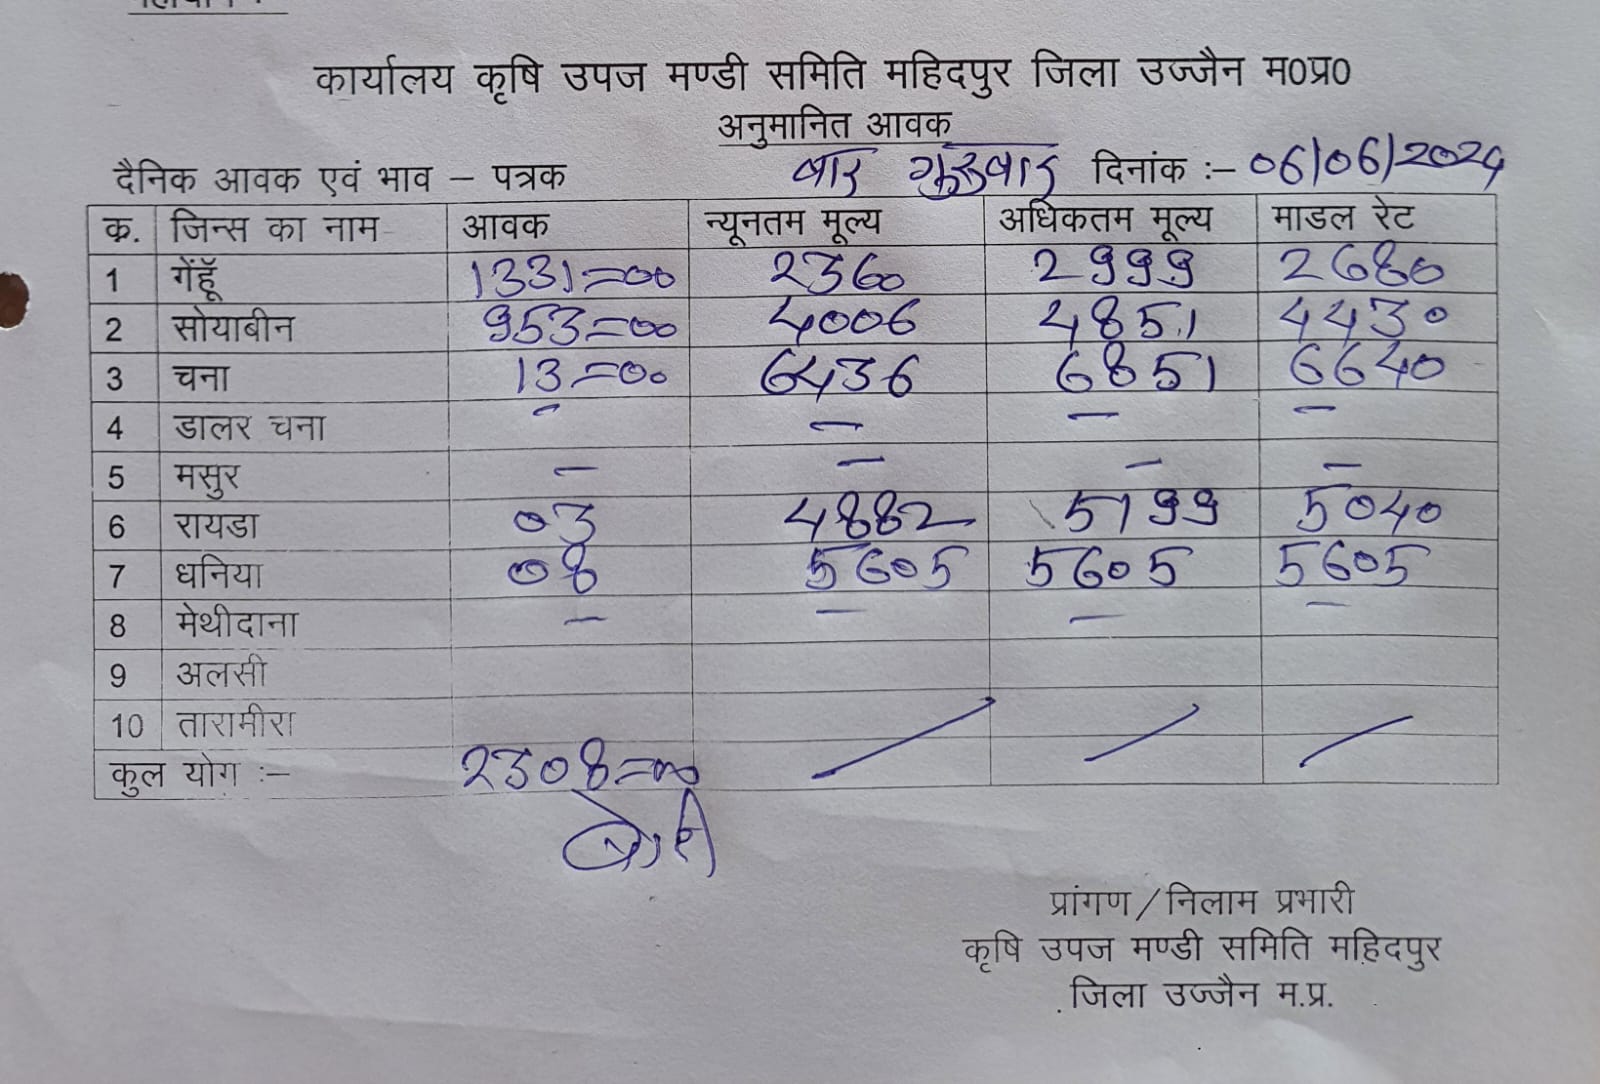 कार्यालय कृषि उपज मण्डी समिति महिदपुर जिला उज्जैन म0प्र0
अनुमानित आवक
दैनिक आवक एवं भाव – पत्रक वार गुरुवार दिनांक :– 06/06/2024
क्र. जिन्स का नाम आवक न्यूनतम मूल्य अधिकतम मूल्य माडल रेट
1 गेंहूँ 1331=00 2360 2999 2680
2 सोयाबीन 953=00 4006 4851 4430
3 चना 13=00 6436 6851 6640
4 डालर चना – – – –
5 मसुर – – – –
6 रायडा 03 4882 5199 5040
7 धनिया 08 5605 5605 5605
8 मेथीदाना – – – –
9 अलसी
10 तारामीरा
कुल योग :– 2308=00
प्रांगण/निलाम प्रभारी
कृषि उपज मण्डी समिति महिदपुर
जिला उज्जैन म.प्र.